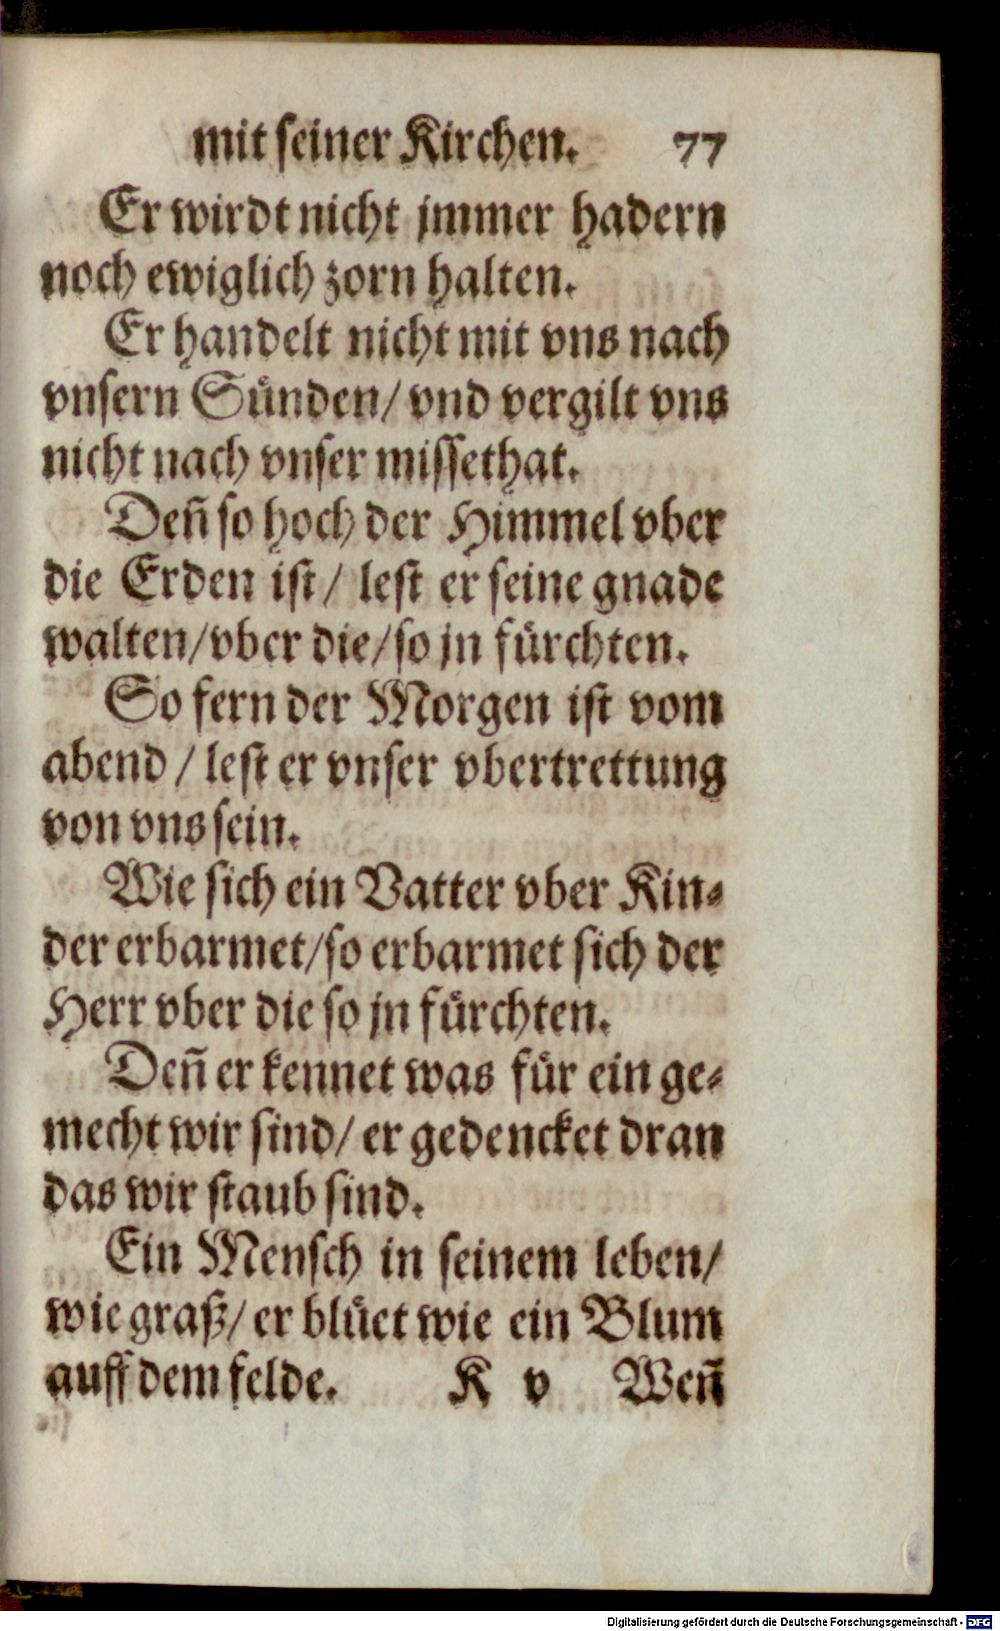 mit seiner Kirchen. 77
Er wirdt nicht jmmer hadern
noch ewiglich zorn halten.
Er handelt nicht mit vns nach
vnsern Sünden/ vnd vergilt vns
nicht nach vnser missethat.
Deñ so hoch der Himmel vber
die Erden ist/ lest er seine gnade
walten/vber die/so jn fürchten.
So fern der Morgen ist vom
abend / lest er vnser vbertrettung
von vns sein.
Wie sich ein Vatter vber Kin⸗
der erbarmet/so erbarmet sich der
Herr vber die so jn fürchten.
Deñ er kennet was für ein ge⸗
mecht wir sind/ er gedencket dran
das wir staub sind.
Ein Mensch in seinem leben/
wie graß/ er blüet wie ein Blum
auff dem felde. K v Weñ
Digitalisierung gefördert durch die Deutsche Forschungsgemeinschaft - DFG